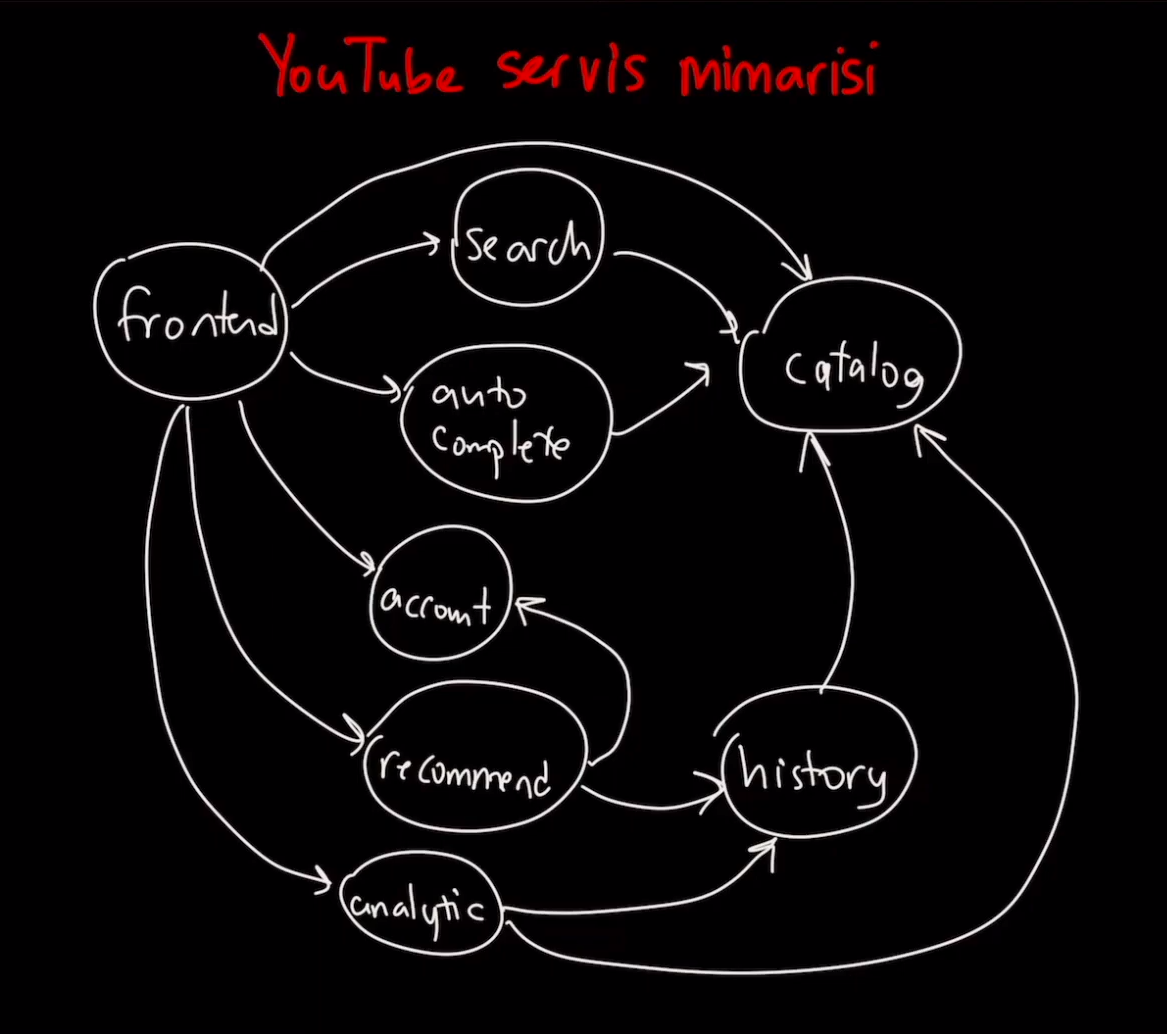 YouTube servis mimarisi
search
frontend
catalog
auto
complete
account
recommend
history
analytic